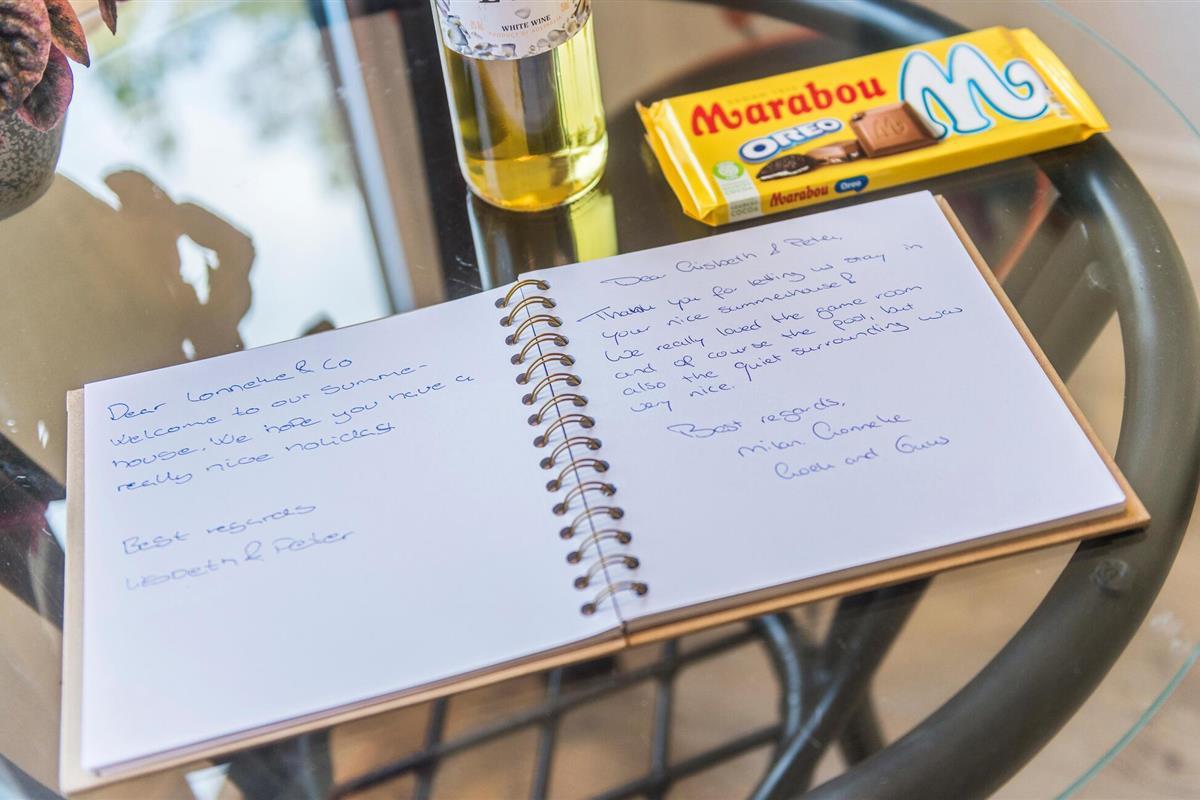 WHITE WINE
PRODUCT OF AUSTRALIA
Marabou
OREO
M
Marabou Oreo
COCOA
Dear Lonneke & Co
Welcome to our summe-
house. We hope you have a
really nice holiday
Best regards
Lisbeth & Peter
Dear Lisbeth & Peter,
Thank you for letting us stay in
your nice summerhouse!
We really loved the game room
and of course the pool, but
also the quiet surrounding was
very nice.
Best regards,
Milan, Lonneke
and Guus